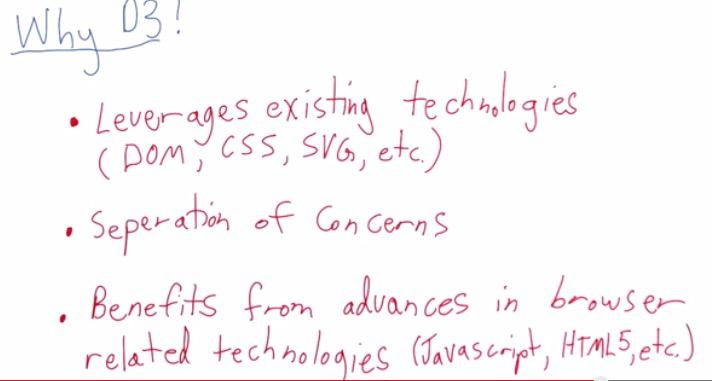 Why D3!
• Leverages existing technologies
(DOM, CSS, SVG, etc.)
• Seperation of Concerns
• Benefits from advances in browser
related technologies (Javascript, HTML5, etc.)